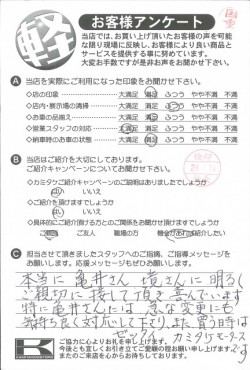 軽
お客様アンケート
当店では、お買い上げ頂いたお客様の声を可能
な限り現場に反映し、お客様により良い商品と
サービスを提供する事に努めています。
大変お手数ですが是非お声をお聞かせ下さい。
A 当店を実際にご利用になった印象をお聞かせ下さい。
◇店の印象 大満足 満足 ふつう やや不満 不満
◇店内・展示場の清掃 大満足 満足 ふつう やや不満 不満
◇お車の品揃え 大満足 満足 ふつう やや不満 不満
◇営業スタッフの対応 大満足 満足 ふつう やや不満 不満
◇納車時のお車の状態 大満足 満足 ふつう やや不満 不満
B 当店はご紹介を大切にしております。
ご紹介キャンペーンについてお聞かせ下さい。
◇カミタケご紹介キャンペーンのご説明はありましたでしょうか
はい いいえ
◇ご紹介を頂けますでしょうか
はい いいえ
◇具体的にご紹介頂ける方とのご関係をお聞かせ頂けますでしょうか
ご親戚 ご友人 職場の方 機会があれば紹介したい
C 担当させて頂きましたスタッフへのご指摘、ご指導メッセージを
お願いします。応援メッセージもぜひお願いします。
本当に亀井さん 境さんに明るく
ご親切に接して頂き喜んでいます
特に亀井さんには 急な変更にも
気持ち良く対応して下さり、また買う時は
ゼッタイ カミタケモータース
です
K
ご協力に心よりお礼を申し上げます。
今後とも宜しくお引き立てご愛顧の程お願い申し上げます
またのご来店を心からお待ちしております。